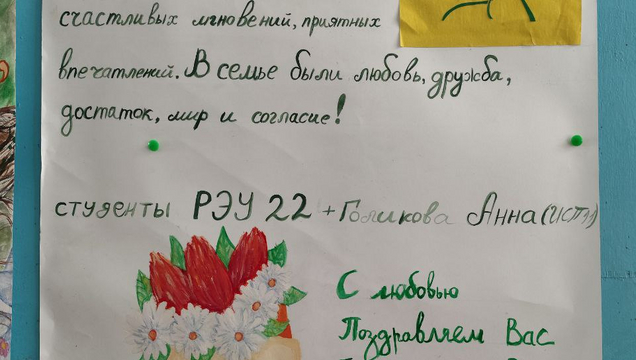 счастливых мгновений, приятных
впечатлений. В семье были любовь, дружба,
достаток, мир и согласие!
студенты РЭУ 22 + Голикова Анна (ИСП31)
С любовью
Поздравляем Вас